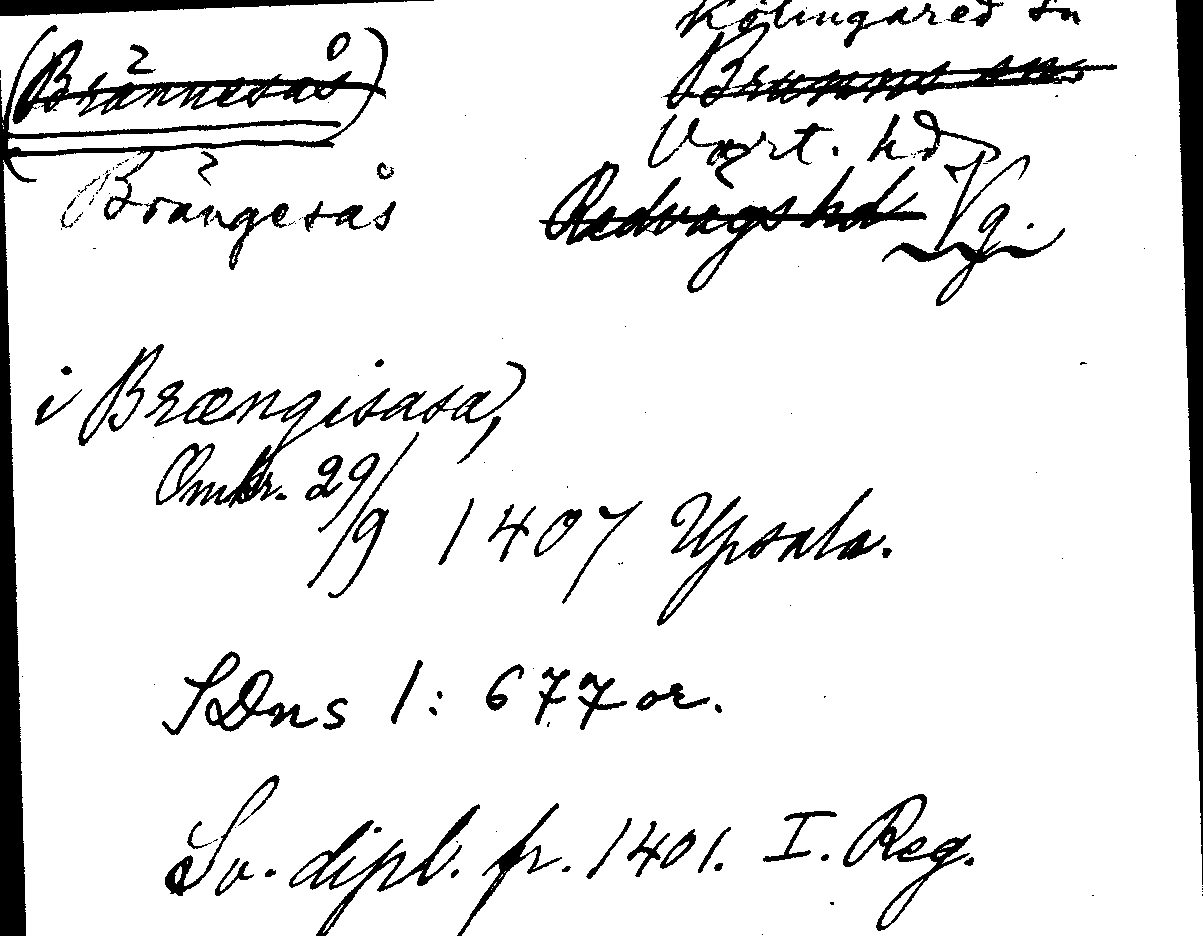 (Brännesås)
Brängesås
Kölingared sn
Brunns sn
Vart. hd
Redvägs hd
Vg.
i Brængisasa,
Omkr. 29/9 1407 Upsala.
SDns 1: 677 or.
Sv. dipl. fr. 1401. I. Reg.